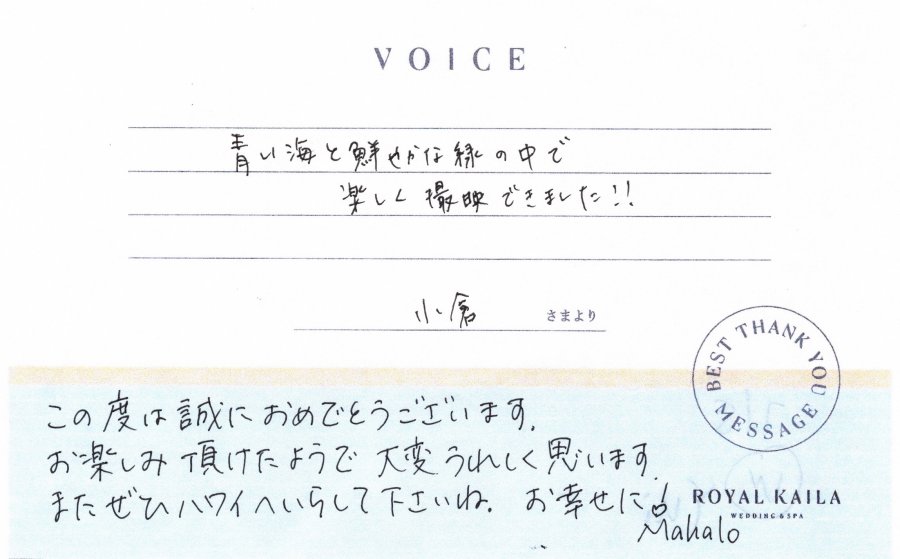 VOICE
青い海と鮮やかな緑の中で
楽しく撮映できました!!
小倉 さまより
BEST THANK YOU MESSAGE
この度は誠におめでとうございます.
お楽しみ頂けたようで大変うれしく思います.
またぜひハワイへいらして下さいね. お幸せに!
ROYAL KAILA
WEDDING & SPA
Mahalo